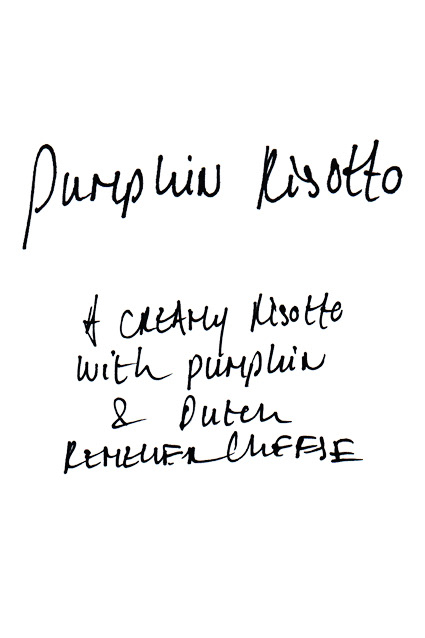 Pumpkin Risotto
A CREAMY Risotto
with pumpkin
& Dutch
REMEKER CHEESE